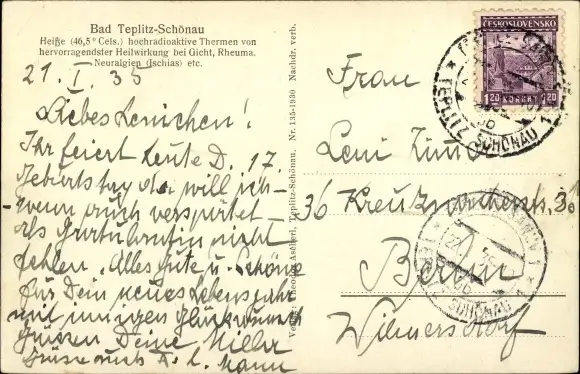 Bad Teplitz-Schönau
Heiße (46,5° Cels.) hochradioaktive Thermen von
hervorragendster Heilwirkung bei Gicht, Rheuma.
Neuralgien (Ischias) etc.
21. I. 35
Liebes Lenichen!
Ihr feiert heute D. 17.
Geburtstag da will ich
wenn auch verspätet
als Gratulantin nicht
fehlen. Alles Gute u. Schöne
für Dein neues Lebensjahr
mit innigen Glückwunsch
Grüssen Deine
Grüsse auch D. l. Mann
Nr. 135-1930 Nachdr. verb.
Ascherl, Teplitz-Schönau.
ČESKOSLOVENSKO
1.20 KORUNY 1.20
TEPLITZ SCHÖNAU 1
Frau
Leni
36
Berlin
Wilmersdorf